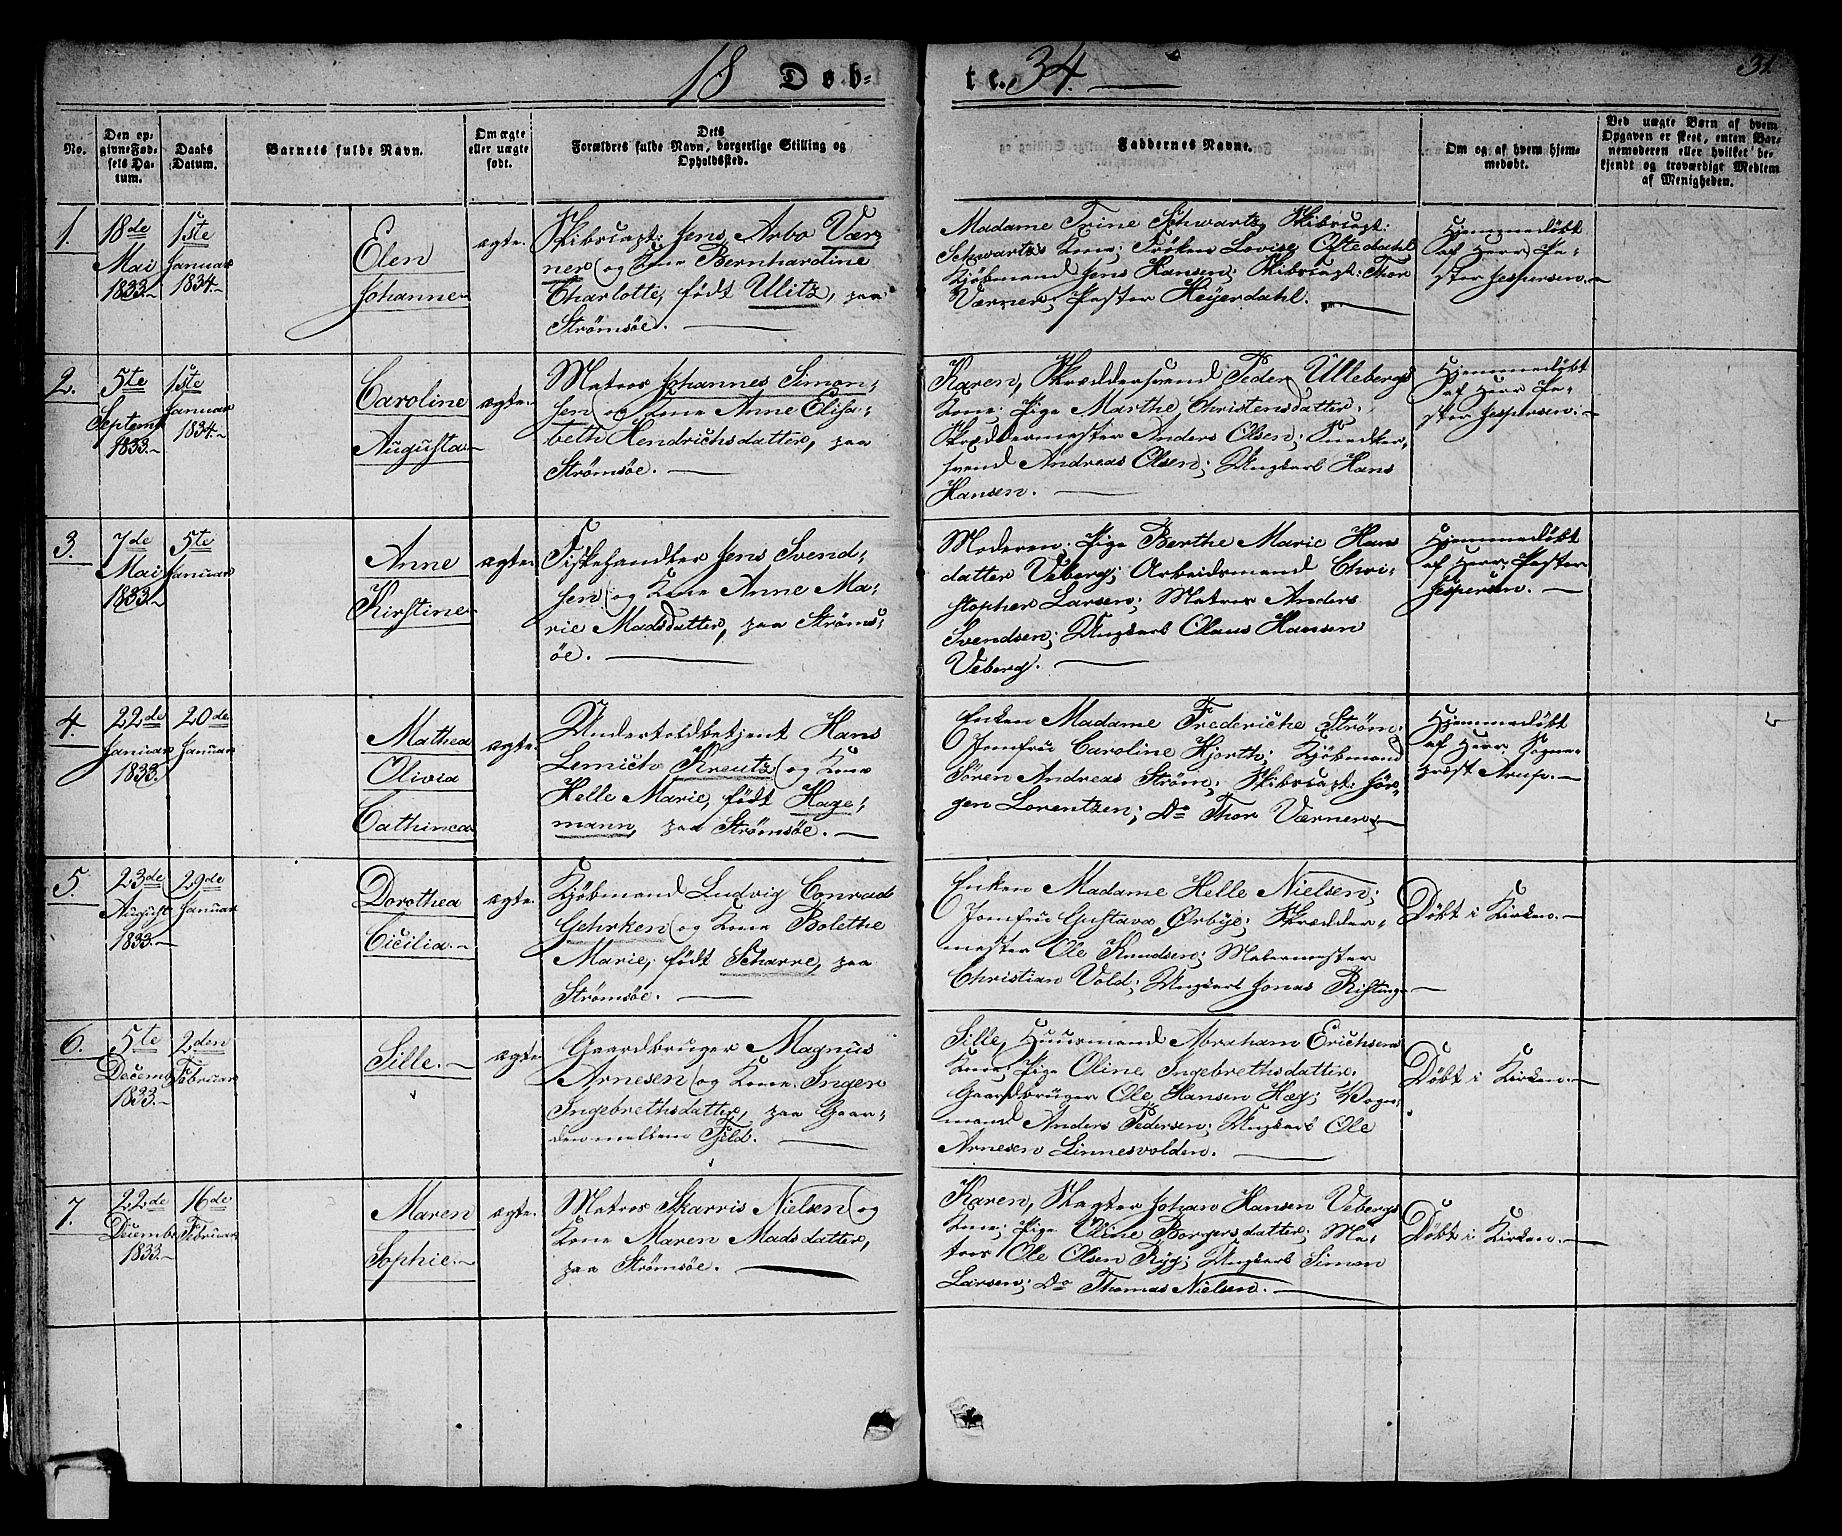 18 Døb-
te. 34.
31
No.
Den op-
givne Fød-
sels Da-
tum.
Daabs
Datum.
Barnets fulde Navn.
Om ægte
eller uægte
født.
Dets
Forældres fulde Navn, borgerlige Stilling og
Opholdssted.
Faddernes Navne.
Om og af hvem hjem-
medøbt.
Ved uægte Børn af hvem
Opgaven er skeet, enten Bar-
nemoderen eller hvilket be-
kjendt og troværdigt Medlem
af Menigheden.
1.
18de
Mai
1833.
1ste
Januar
1834.
Elen
Johanne
ægte.
Skibscapt: Jens Arbo Vær-
ner og Kone Bernhardine
Charlotte, født Ulitz, paa
Strømsøe.
Madame Trine Schwartz, Skibscapt:
Schwartz's Kone; Frøken Lovise Oftedahl
Kjøbmand Jens Hansen; Skibscapt: Thor
Værner; Pastor Heyerdahl.
Hjemmedøbt
af Herr Pa-
stor Jespersen.
2.
5te
Septemb
1833.
1ste
Januar
1834.
Caroline
Augusta
ægte.
Matros Johannes Simon-
sen og Kone Anne Elisa-
beth Hendrichsdatter, paa
Strømsøe.
Karen, Skræddersvend Peder Ullebergs
Kone; Pige Marthe Christensdatter;
Skræddermester Anders Olsen; Snedker-
svend Andreas Olsen; Ungkarl Hans
Hansen.
Hjemmedøbt
af Herr Pa-
stor Jespersen.
3.
7de
Mai
1833.
5te
Januar
Anne
Kirstine
ægte.
Fiskehandler Jens Svend-
sen og Kone Anne Ma-
rie Madsdatter, paa Strøms-
øe.
Moderen; Pige Berthe Marie Hans
datter Veberg; Arbeidsmand Chri-
stopher Larsen; Matros Anders
Svendsen; Ungkarl Olaus Hansen
Veberg.
Hjemmedøbt
af Herr Pastor
Jespersen.
4.
22de
Januar
1833.
20de
Januar
Mathea
Olivia
Cathinca
ægte.
Undertoldbetjent Hans
Lemich Kreutz og Kone
Helle Marie, født Hage-
mann, paa Strømsøe.
Enken Madame Frederiche Strøm;
Jomfru Caroline Hjorth; Kjøbmand
Søren Andreas Strøm; Skibscapt: Jør-
gen Lorentzen; Do Thor Værner
Hjemmedøbt
af Herr Sogne-
præst Arup.
5.
23de
August
1833.
29de
Januar
Dorothea
Cicilia
ægte.
Kjøbmand Ludvig Conrad
Gehrken og Kone Bolethe
Marie, født Scharre, paa
Strømsøe.
Enken Madame Helle Nielsen;
Jomfru Gustava Ørbye; Skrædder-
mester Ole Knudsen; Malermester
Christian Vold; Ungkarl Jonas Ristinge
Døbt i Kirken.
6.
5te
Decemb
1833.
2den
Februar
Sille.
ægte.
Gaardbruger Magnus
Arnesen og Kone Inger
Ingebrethsdatter, paa Gaar-
den mellem Fjeld.
Sille, Huusmand Abraham Erichsens
Kone; Pige Oline Ingebrethsdatter.
Gaardbruger Ole Hansen Hæg; Vogn-
mand Anders Pedersen; Ungkarl Ole
Arnesen Linnesvolden.
Døbt i Kirken.
7.
22de
Decemb
1833.
16de
Februar
Maren
Sophie.
ægte.
Matros Skarris Nielsen og
Kone Maren Madsdatter,
paa Strømsøe.
Karen, Slagter Johan Hansen Vebergs
Kone; Pige Oline Borgersdatter; Ma-
tros Ole Olsen Ryg; Ungkarl Simon
Larsen; Do Thomas Nielsen.
Døbt i Kirken.